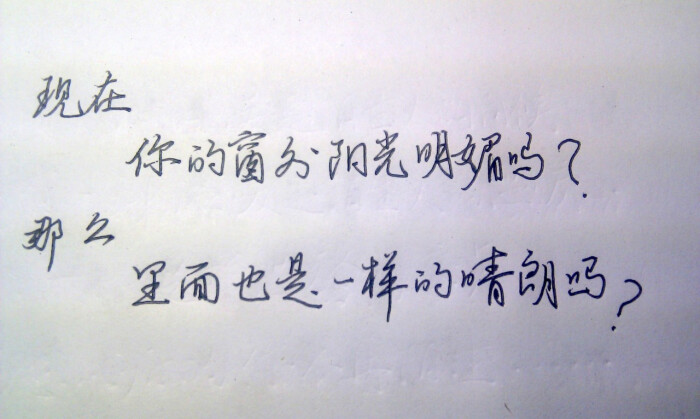 现在
你的窗外阳光明媚吗?
那么
里面也是一样的晴朗吗?